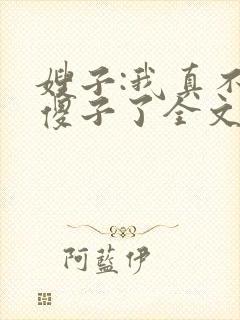 嫂子:我真不
傻子了全文
阿蓝伊